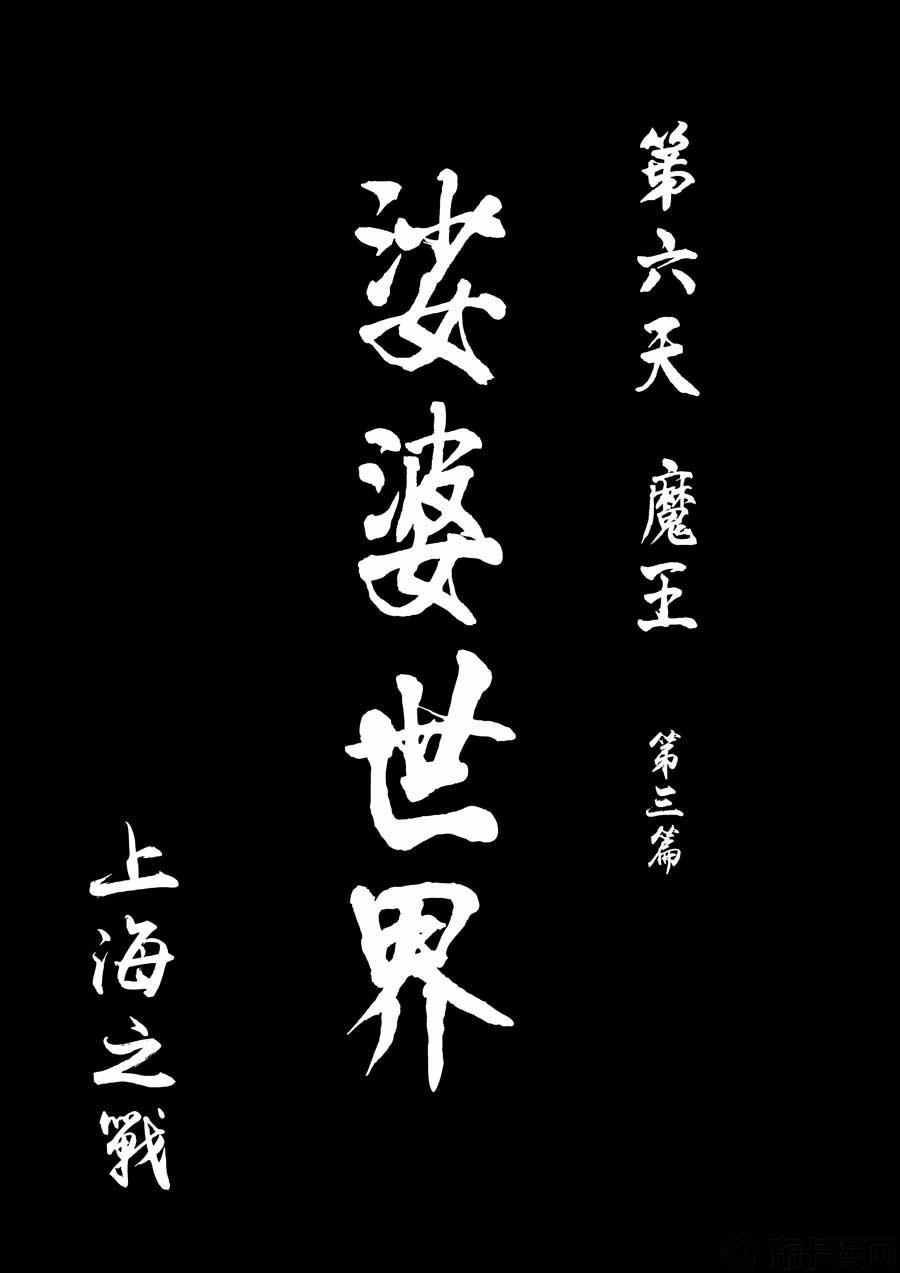 第六天 魔王 第三篇
娑婆世界
上海之戰
布卡漫画